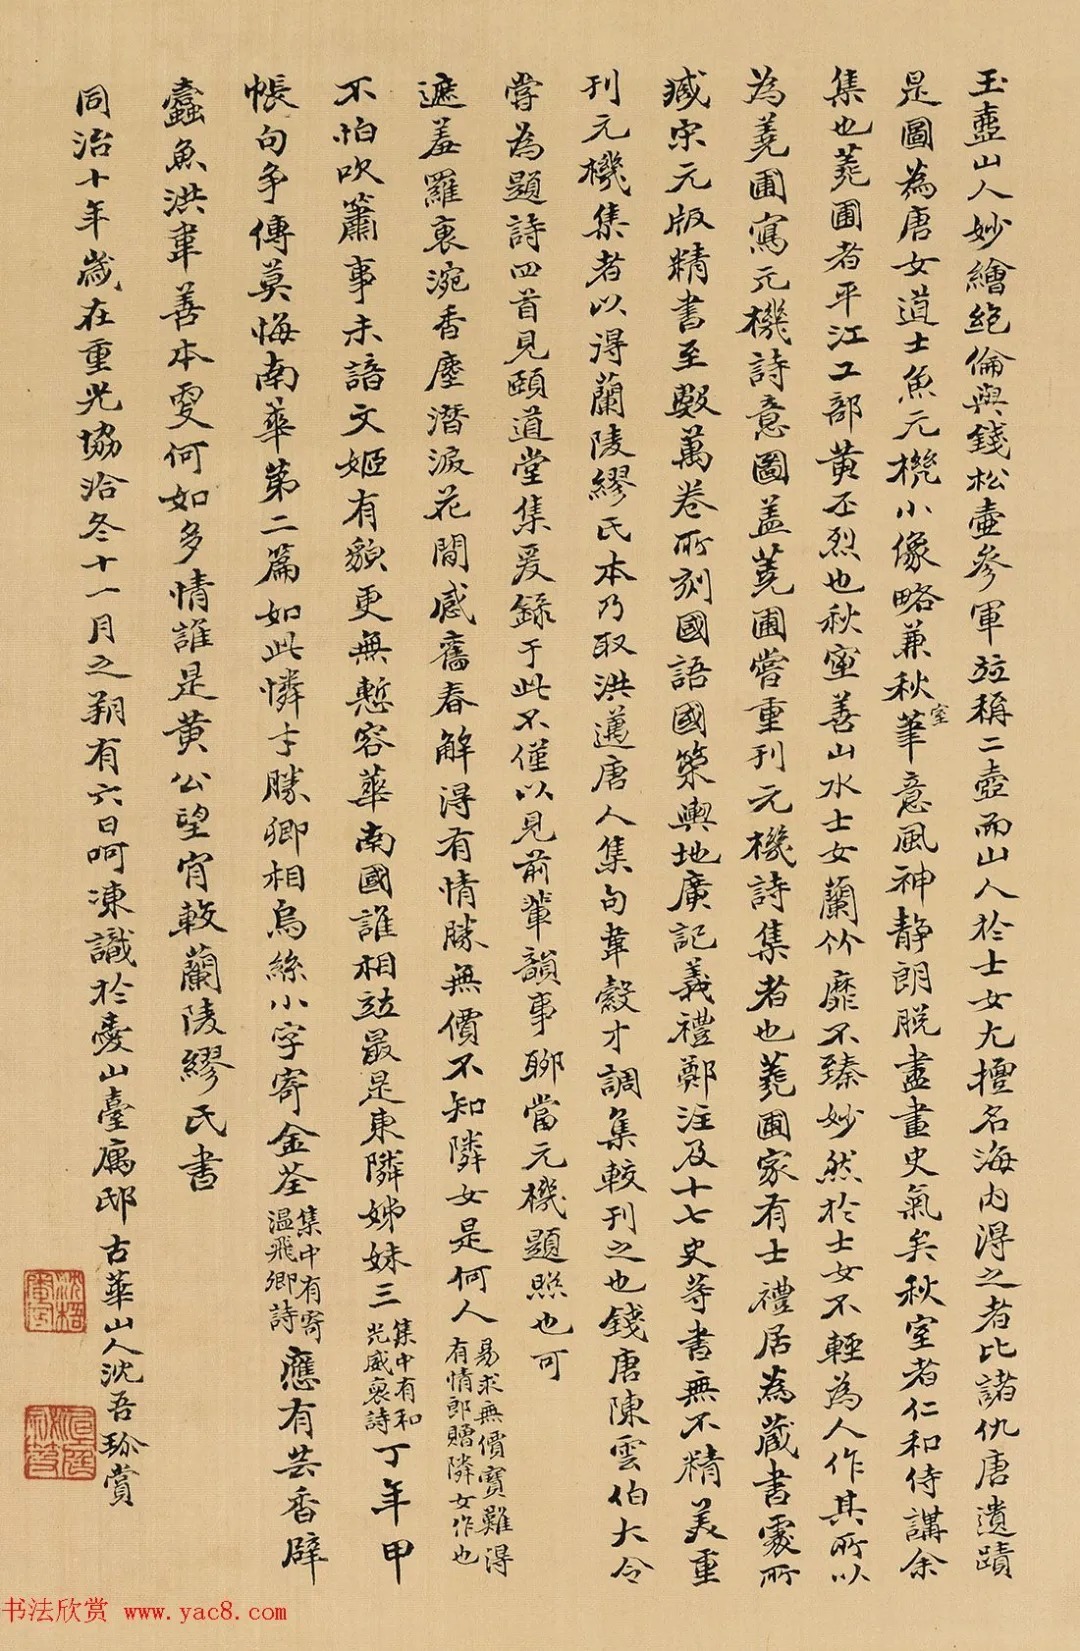 玉壺山人妙繪絕倫與錢松壺參軍竝稱二壺而山人於士女尤擅名海內得之者比諸仇唐遺蹟
是圖為唐女道士魚元機小像略兼秋室筆意風神静朗脫盡畫史氣矣秋室者仁和侍講余
集也蕘圃者平江工部黃丕烈也秋室善山水士女蘭竹靡不臻妙然於士女不輕為人作其所以
為蕘圃寫元機詩意圖盖蕘圃嘗重刊元機詩集者也蕘圃家有士禮居為蔵書處所
臧宋元版精書至數萬卷所刻國語國策輿地廣記義禮鄭注及十七史等書無不精美重
刊元機集者以得蘭陵繆氏本乃取洪邁唐人集句韋縠才調集較刊之也錢唐陳雲伯大令
嘗為題詩四首見頤道堂集爰錄于此不僅以見前輩韻事聊當元機題照也可
遮羞羅裹涴香塵潛淚花間感舊春解得有情勝無價不知隣女是何人 易求無價寶難得有情郎贈隣女作也
不怕吹簫事未諳文姬有貌更無慙容華南國誰相竝最是東隣姊妹三 集中有和光威裒詩 丁年甲
帳句争傳莫悔南華第二篇如此憐才勝卿相烏絲小字寄金荃 集中有寄温飛卿詩 應有芸香辟
蠹魚洪韋善本更何如多情誰是黃公望肎較蘭陵繆氏書
同治十年歲在重光協洽冬十一月之朔有六日呵凍識於臺山臺寓邸古華山人沈吾珍賞
书法欣赏 www.yac8.com